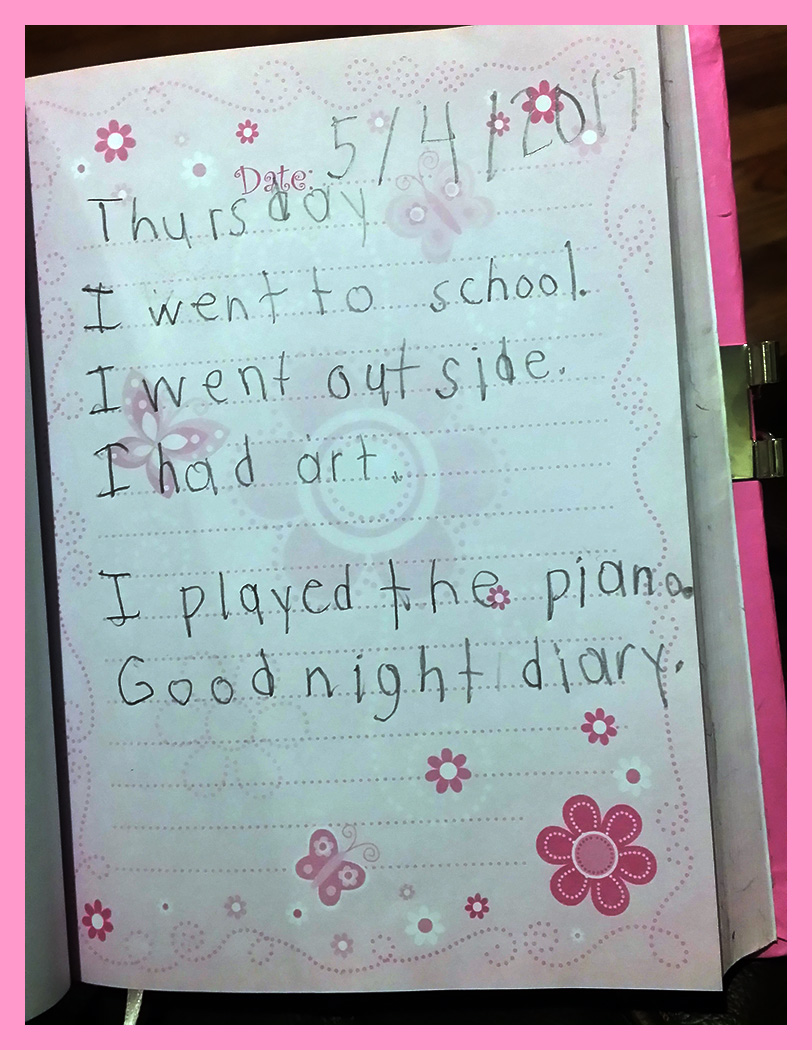 Date: 5/4/2017
Thursday
I went to school.
I went outside.
I had art.
I played the piano.
Good night diary.